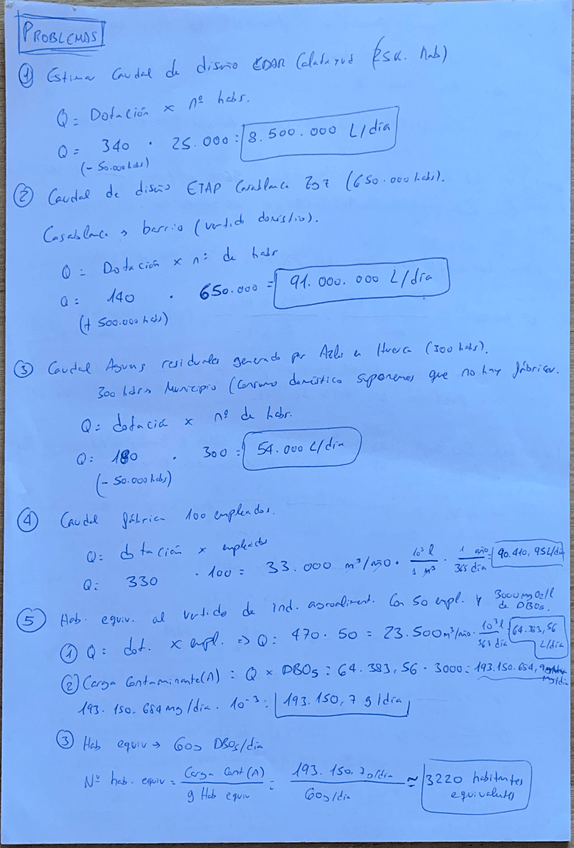 PROBLEMAS
① Estimar Caudal de diseño EDAR Calatayud (25k. hab)
Q = Dotación x nº habs.
Q = 340 · 25.000 = 8.500.000 L/día
(- 50.000 habs)
② Caudal de diseño ETAP Casablanca (650.000 habs).
Casablanca → barrio (vertido doméstico).
Q = Dotación x nº de habs
Q = 140 · 650.000 = 91.000.000 L/día
(+ 500.000 habs)
③ Caudal Aguas residuales generado por en Huesca (300 habs).
300 habs Municipio (Consumo doméstico suponemos que no hay fábricas.
Q = dotación x nº de habs.
Q = 180 · 300 = 54.000 L/día
(- 50.000 habs)
④ Caudal fábrica 100 empleados.
Q = dotación x empleados
Q = 330 · 100 = 33.000 m³/año · 10³ l / 1 m³ · 1 año / 365 día = 90.410,95 L/día
⑤ Hab. equiv. al vertido de ind. agroaliment. Con 50 empl. y 3000 mgO₂/l de DBO₅.
① Q = dot. x empl. ⇒ Q = 470 · 50 = 23.500 m³/año · 10³ l / 365 día = 64.383,56 L/día
② Carga Contaminante (A) = Q x DBO₅ = 64.383,56 · 3000 = 193.150.684, mg/día
193.150.684 mg/día · 10⁻³ = 193.150,7 g/día
③ Hab equiv → 60g DBO₅/día
Nº hab. equiv = Carga Cont (A) / g Hab equiv = 193.150.7g/día / 60g/día ≃ 3220 habitantes equivalentes